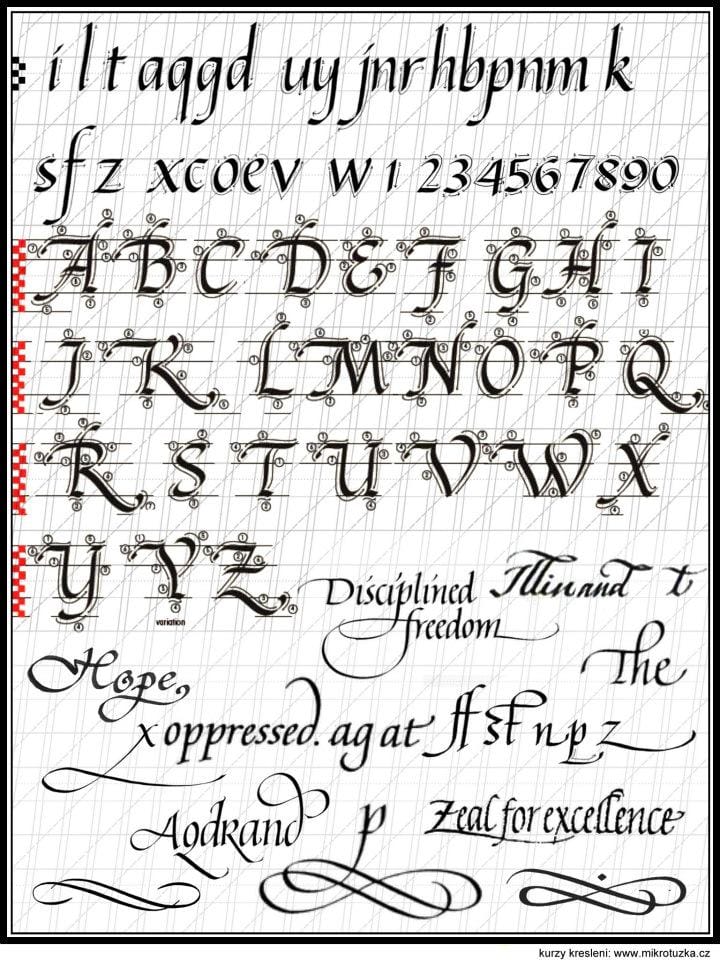 i l t a q g d u y j n r h b p n m k
s f z x c o e v w 1 2 3 4 5 6 7 8 9 0
A B C D E F G H I
J K L M N O P Q
R S T U V V W X
Y Y Z
variation
Disciplined
freedom
t
The
Hope,
x oppressed. ag at ff n p z
p
Zeal for excellence
kurzy kresleni: www.mikrotuzka.cz